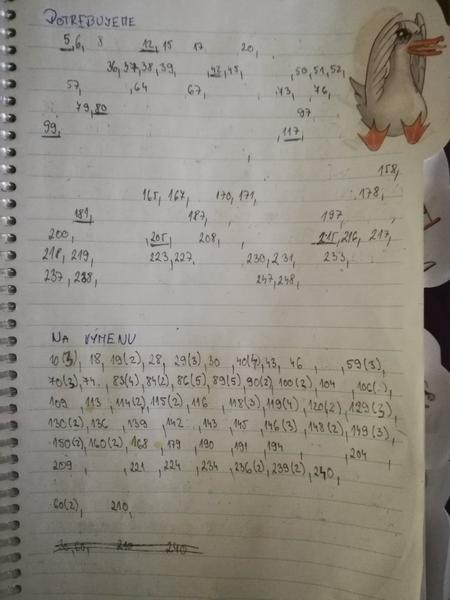 POTŘEBUJEME
5, 6, 8 12, 15 17, 20,
36, 37, 38, 39, 42, 45, 50, 51, 52,
57, 64 67, 73, 76,
79, 80 97,
99, 117,
158,
165, 167, 170, 171, 178,
181, 187, 197,
200, 205, 208, 215, 216, 217,
218, 219, 223, 227, 230, 231, 233,
237, 238, 247, 248,
NA VÝMĚNU
10(3), 18, 19(2), 28, 29(3), 30, 40(4), 43, 46, 59(3),
70(3), 74, 83(4), 84(2), 86(5), 89(5), 90(2), 100(2), 104,
109, 113, 114(2), 115(2), 116, 118(3), 119(4), 120(2), 129(3),
130(2), 136, 139, 142, 143, 145, 146(3), 148(2), 149(3),
150(2), 160(2), 168, 179, 190, 191, 194, 204,
209, 221, 224, 234, 236(2), 239(2), 240,
60(2), 210,
30, 60, 210 240